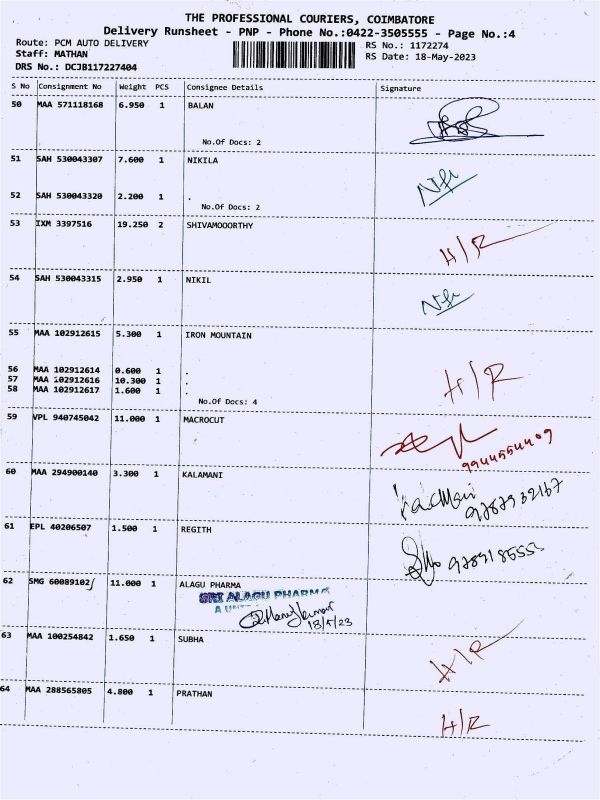 THE PROFESSIONAL COURIERS, COIMBATORE
Delivery Runsheet - PNP - Phone No.:0422-3505555 - Page No.:4
Route: PCM AUTO DELIVERY
RS No.: 1172274
Staff: MATHAN
RS Date: 18-May-2023
DRS No.: DCJB117227404
S No Consignment No Weight PCS Consignee Details Signature
50 MAA 571118168 6.950 1 BALAN
No.Of Docs: 2
51 SAH 530043307 7.600 1 NIKILA
52 SAH 530043320 2.200 1 .
No.Of Docs: 2
53 IXM 3397516 19.250 2 SHIVAMOOORTHY
H/R
54 SAH 530043315 2.950 1 NIKIL
55 MAA 102912615 5.300 1 IRON MOUNTAIN
56 MAA 102912614 0.600 1 .
57 MAA 102912616 10.300 1 .
58 MAA 102912617 1.600 1 .
H/R
No.Of Docs: 4
59 VPL 940745042 11.000 1 MACROCUT
9944554409
60 MAA 294900140 3.300 1 KALAMANI
9787932167
61 EPL 40206507 1.500 1 REGITH
62 SMG 60089102 11.000 1 ALAGU PHARMA
SRI ALAGU PHARMA
18/5/23
63 MAA 100254842 1.650 1 SUBHA
H/R
64 MAA 288565805 4.800 1 PRATHAN
H/R